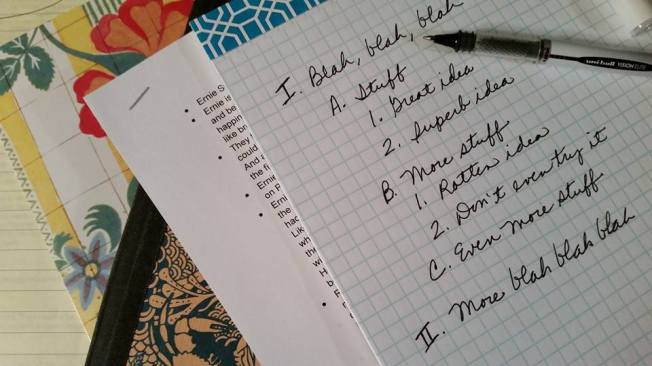 I. Blah, blah, blah
A. Stuff
1. Great idea
2. Superb idea
B. More stuff
1. Rotten idea
2. Don't even try it
C. Even more stuff
II. More blah blah blah
uni-ball VISION ELITE
Ernie S
Ernie is
and be
happin
like br
They
could
And
the fi
Ernie
on F
Erni
the
Had
Lik
wh
the
w
H